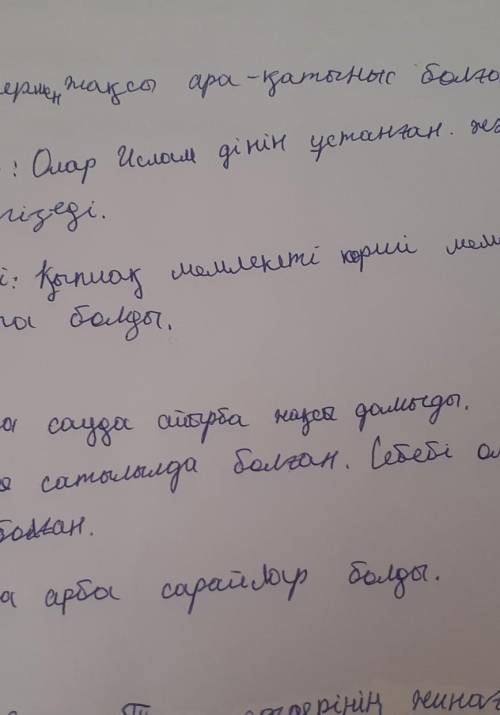 ермен жақсы ара-қатыныс болға
: Олар Ислам дінін ұстанған.
гізеді.
і: Қыпшақ мемлекеті көрші мем
болды.
а сауда айырба жақсы дамыды.
сатылылда болған. Себебі ол
болған.
а арба сарайлар болды.
ерінің жинағ